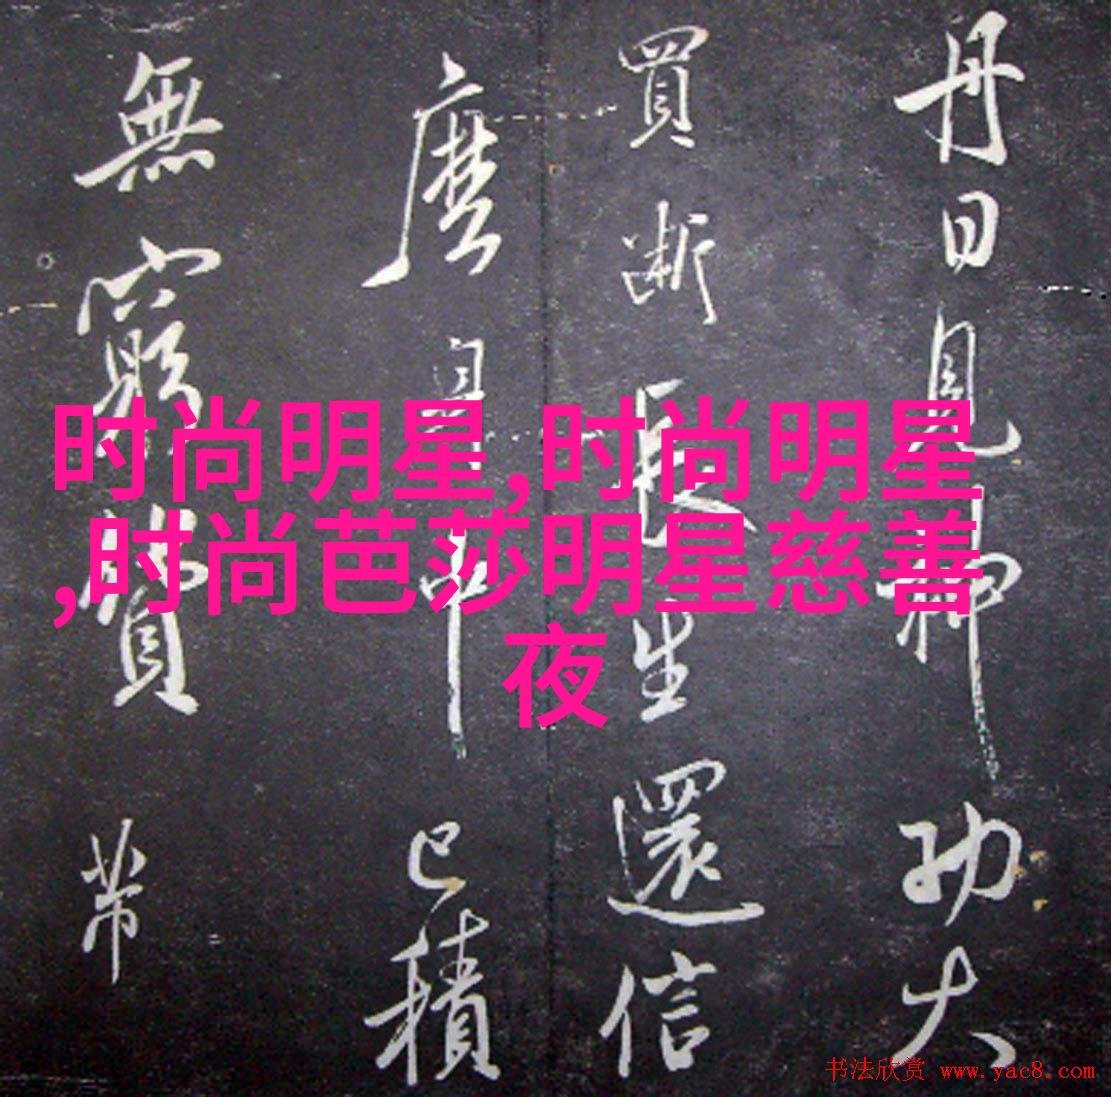 时尚明星,时尚明星
,时尚芭莎明星慈善
夜
丹日見神功大
買断長生還信
麼身中已積
無窮
书法欣赏 www.yac8.com